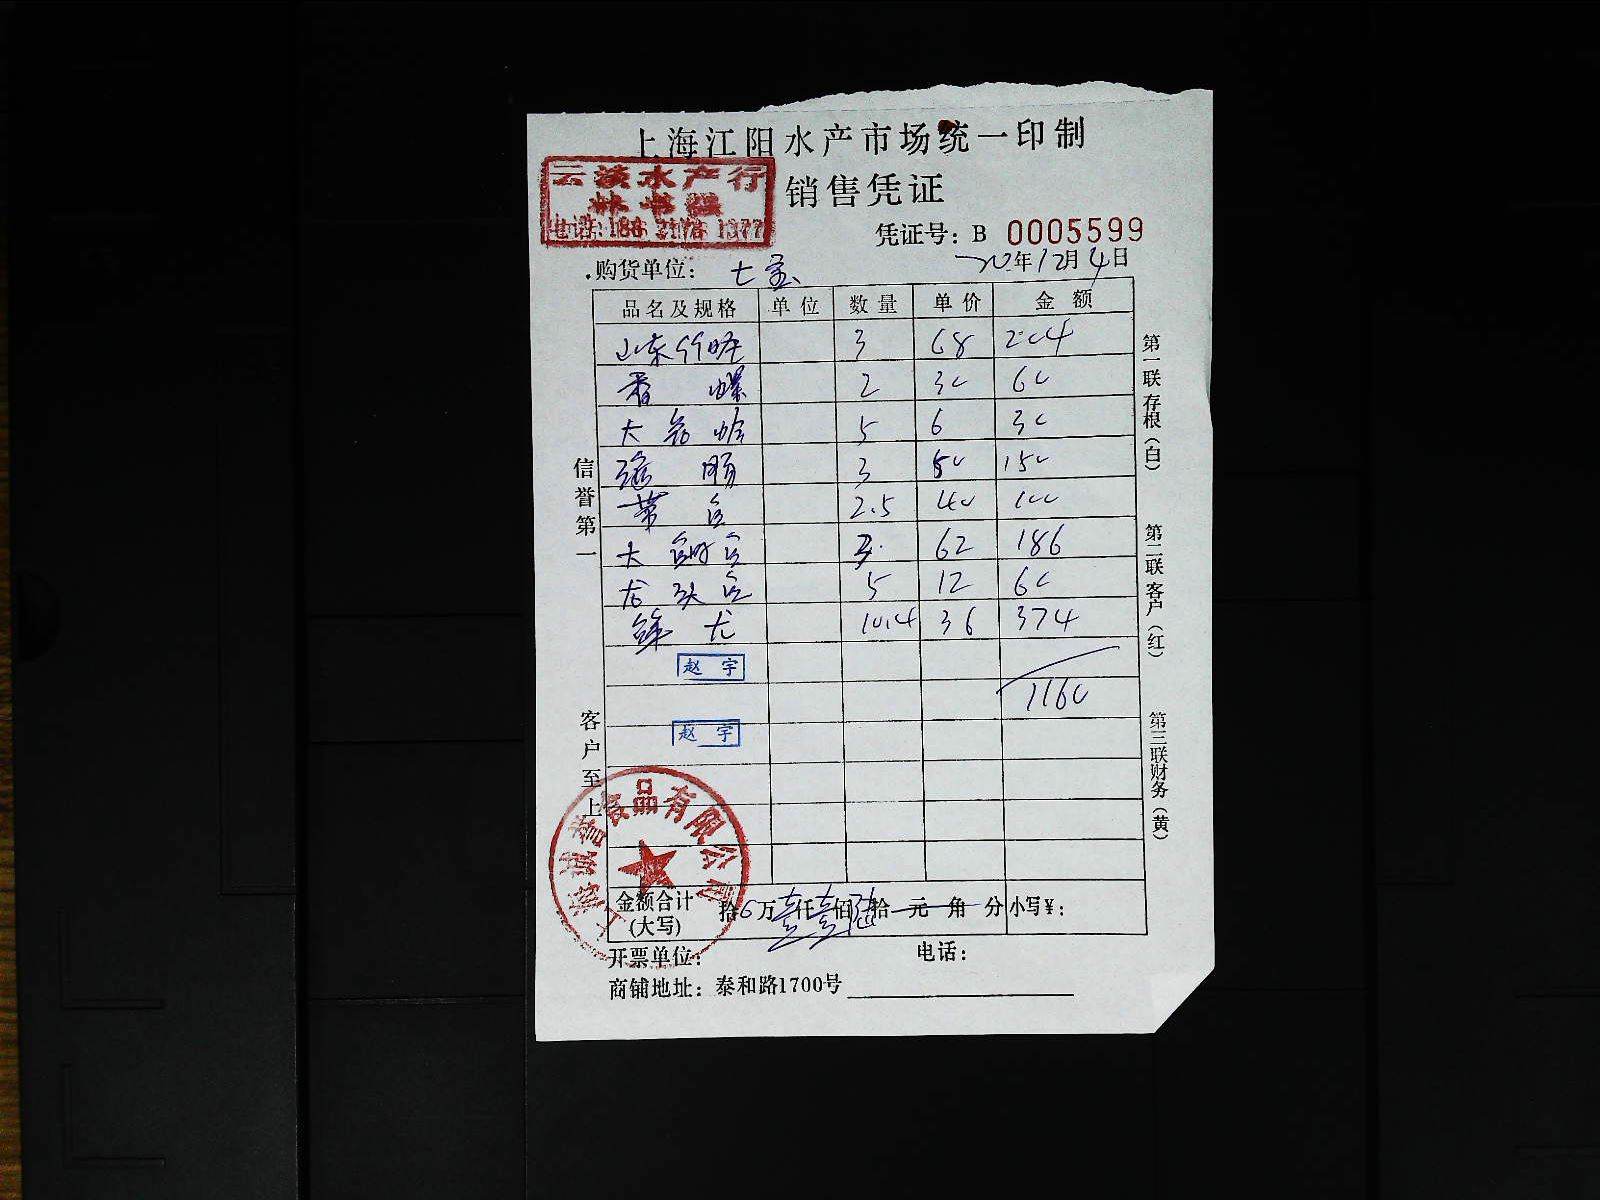 上海江阳水产市场统一印制
云淡水产行
销售凭证
凭证号：B 0005599
购货单位：七宝
20年12月4日
品名及规格 单位 数量 单价 金额
山东竹蛏 3 68 204
香螺 2 30 60
大 蛤 5 6 30
3 50 150
带鱼 2.5 40 100
大 鱼 3 62 186
龙头鱼 5 12 60
龙 10.4 36 374
赵宇
1160
赵宇
信誉第一
客户至上
第一联存根（白）
第二联客户（红）
第三联财务（黄）
上海诚誉食品有限公司
金额合计(大写) 拾 万壹仟壹佰陆拾元角分 小写￥：
开票单位： 电话：
商铺地址：泰和路1700号